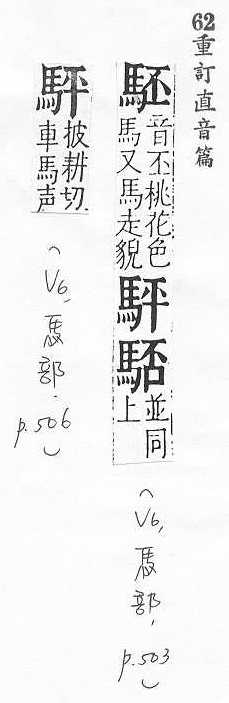 62重訂直音篇
駓音丕桃花色
馬又馬走貌
駍並同
上
(V6, 馬部, p.503)
駍披耕切
車馬声
(V6, 馬部, p.506)